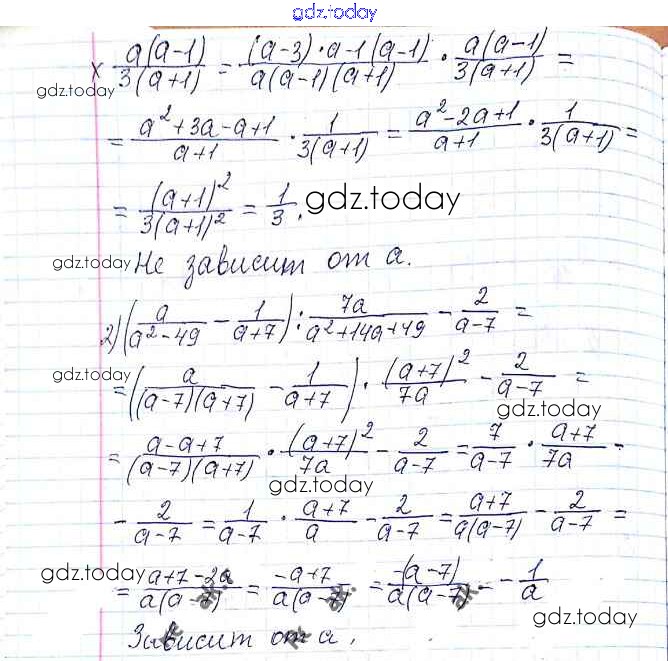 gdz.today
× a(a-1)/3(a+1) = (a-3)·a-1(a-1)/a(a-1)(a+1) · a(a-1)/3(a+1) =
gdz.today
= a²+3a-a+1/a+1 · 1/3(a+1) = a²-2a+1/a+1 · 1/3(a+1) =
= (a+1)²/3(a+1)² = 1/3. gdz.today
gdz.today Не зависит от а.
2) (a/a²-49 - 1/a+7) : 7a/a²+14a+49 - 2/a-7 =
gdz.today
= (a/(a-7)(a+7) - 1/a+7) · (a+7)²/7a - 2/a-7 =
gdz.today
= a-a+7/(a-7)(a+7) · (a+7)²/7a - 2/a-7 = 7/a-7 · a+7/7a -
gdz.today
- 2/a-7 = 1/a-7 · a+7/a - 2/a-7 = a+7/a(a-7) - 2/a-7 =
gdz.today
= a+7-2a/a(a-7) = -a+7/a(a-7) = -(a-7)/a(a-7) = -1/a
gdz.today
Зависит от а.